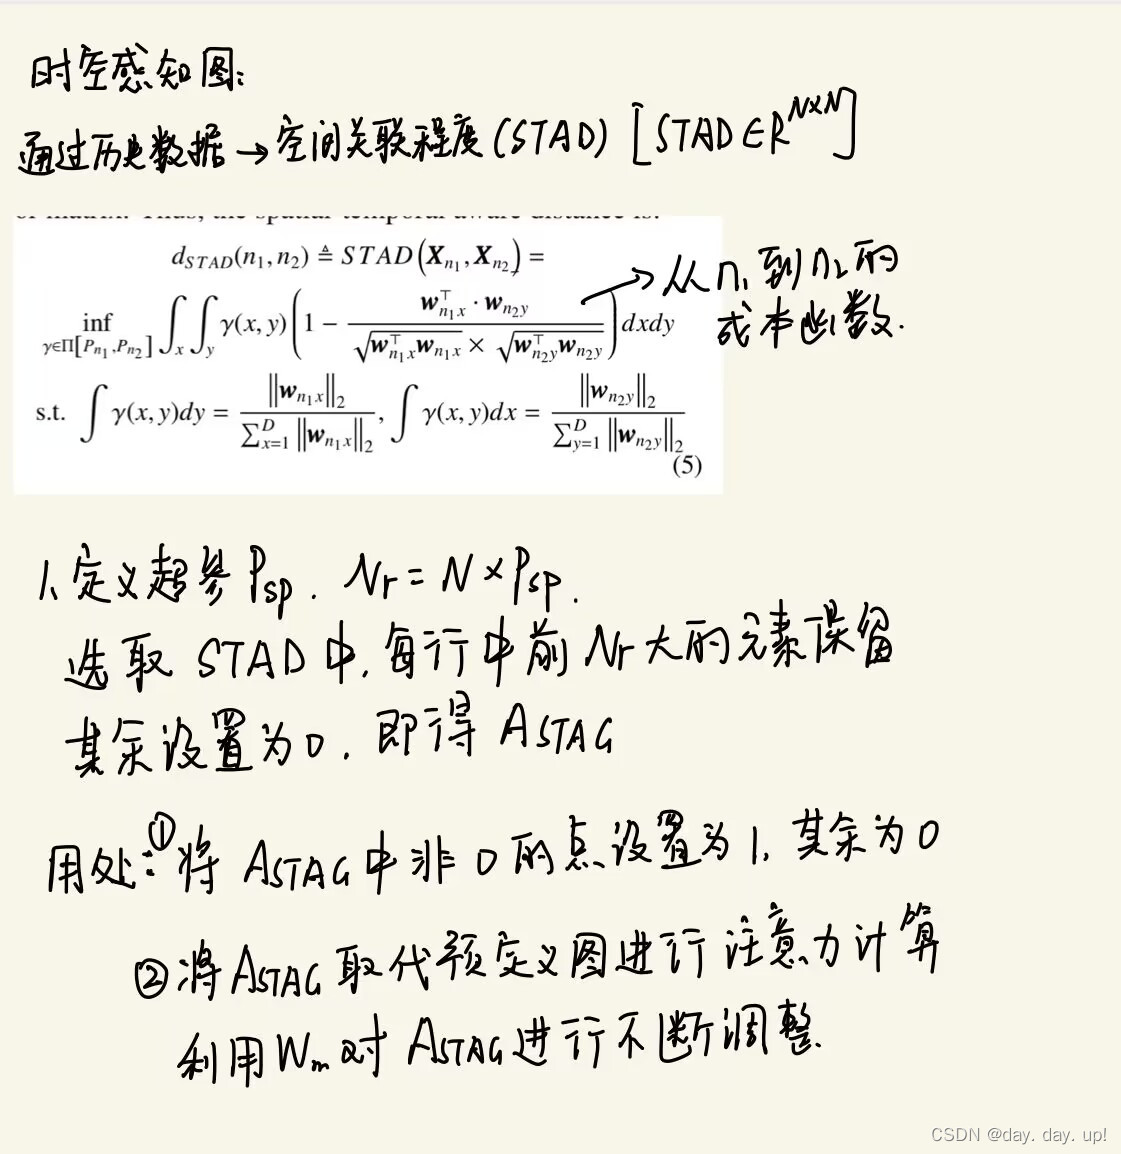 时空感知图:
通过历史数据 → 空间关联程度(STAD) [STAD∈R^{N×N}]
d_{STAD}(n_1, n_2) ≜ STAD(X_{n_1}, X_{n_2}) =
inf_{γ∈Π[P_{n_1},P_{n_2}]} ∫_x ∫_y γ(x, y) (1 − \frac{w_{n_1x}^⊤ · w_{n_2y}}{\sqrt{w_{n_1x}^⊤ w_{n_1x}} × \sqrt{w_{n_2y}^⊤ w_{n_2y}}}) dxdy
→从n_1到n_2的
成本函数.
s.t. ∫ γ(x, y)dy = \frac{‖w_{n_1x}‖_2}{∑_{x=1}^D ‖w_{n_1x}‖_2}, ∫ γ(x, y)dx = \frac{‖w_{n_2y}‖_2}{∑_{y=1}^D ‖w_{n_2y}‖_2}
(5)
1、定义超参P_{sp}. N_r = N × P_{sp}.
选取 STAD中,每行中前 N_r 大的元素保留
其余设置为0. 即得 A_{STAG}
用处:①将 A_{STAG}中非0的点设置为1, 其余为0
②将A_{STAG}取代预定义图进行注意力计算
利用W_m对A_{STAG}进行不断调整.
CSDN @day. day. up!